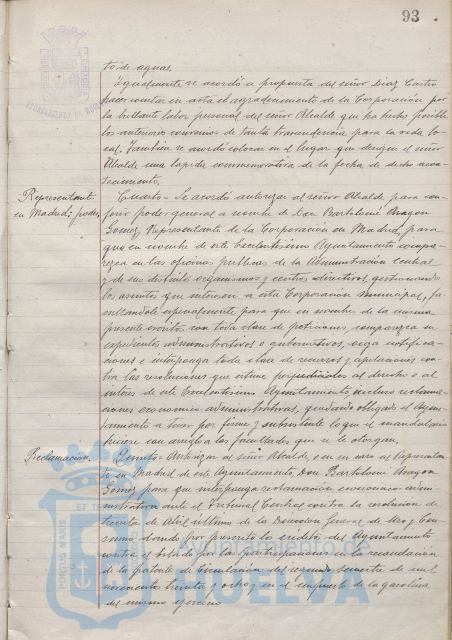 93
to de aguas.
Igualmente se acordó a propuesta del señor Diaz Castro
hacer constar en acta el agradecimiento de la Corporación por
la brillante labor personal del señor Alcalde que ha hecho posible
los anteriores de tanta transcendencia para la vida lo-
cal. También se acordó colocar en el lugar que designe el señor
Alcalde una lapida conmemorativa de la fecha de dicho acon-
tecimiento.
Representante
en Madrid; poder
Cuarto - Se acordó autorizar al señor Alcalde para con-
ferir poder general a nombre de Don Bartolomé Aragon
Gomez, Representante de la Corporación en Madrid, para
que en nombre de este Excelentisimo Ayuntamiento compa-
rezca en las oficinas publicas de la Administración Central
y de sus distintos organismos y centros directivos, gestionando
los asuntos que interesen a esta Corporación municipal, fa-
cultandole especialmente para que en nombre de la misma
presente escritos con toda clase de peticiones, comparezca en
expedientes administrativos o gubernativos, oiga notifica-
ciones e interponga toda clase de recursos y apelaciones con-
tra las resoluciones que estime perjudiciales al derecho o al
interés de este Excelentisimo Ayuntamiento, incluso reclama-
ciones economico-administrativas, quedando obligado el Ayun-
tamiento a tener por firme y subsistente lo que el mandatario
hiciese con arreglo a las facultades que se le otorgan.
Reclamación.
Autorizar al señor Alcalde o en su caso al Represen-
tante en Madrid de este Ayuntamiento, Don Bartolomé Aragon
Gomez para que interponga reclamación economico-admi-
nistrativa ante el Tribunal Central contra la resolución de
treinta de Abril ultimo de la Dirección General de
dando por prescrito los creditos del Ayuntamiento
contra el Estado por las participaciones en la recaudación
de la patente de Circulación del segundo semestre de mil
novecientos treinta y ocho y en el impuesto de la gasolina
del mismo ejercicio
PORTUS MARIS
HUELVA